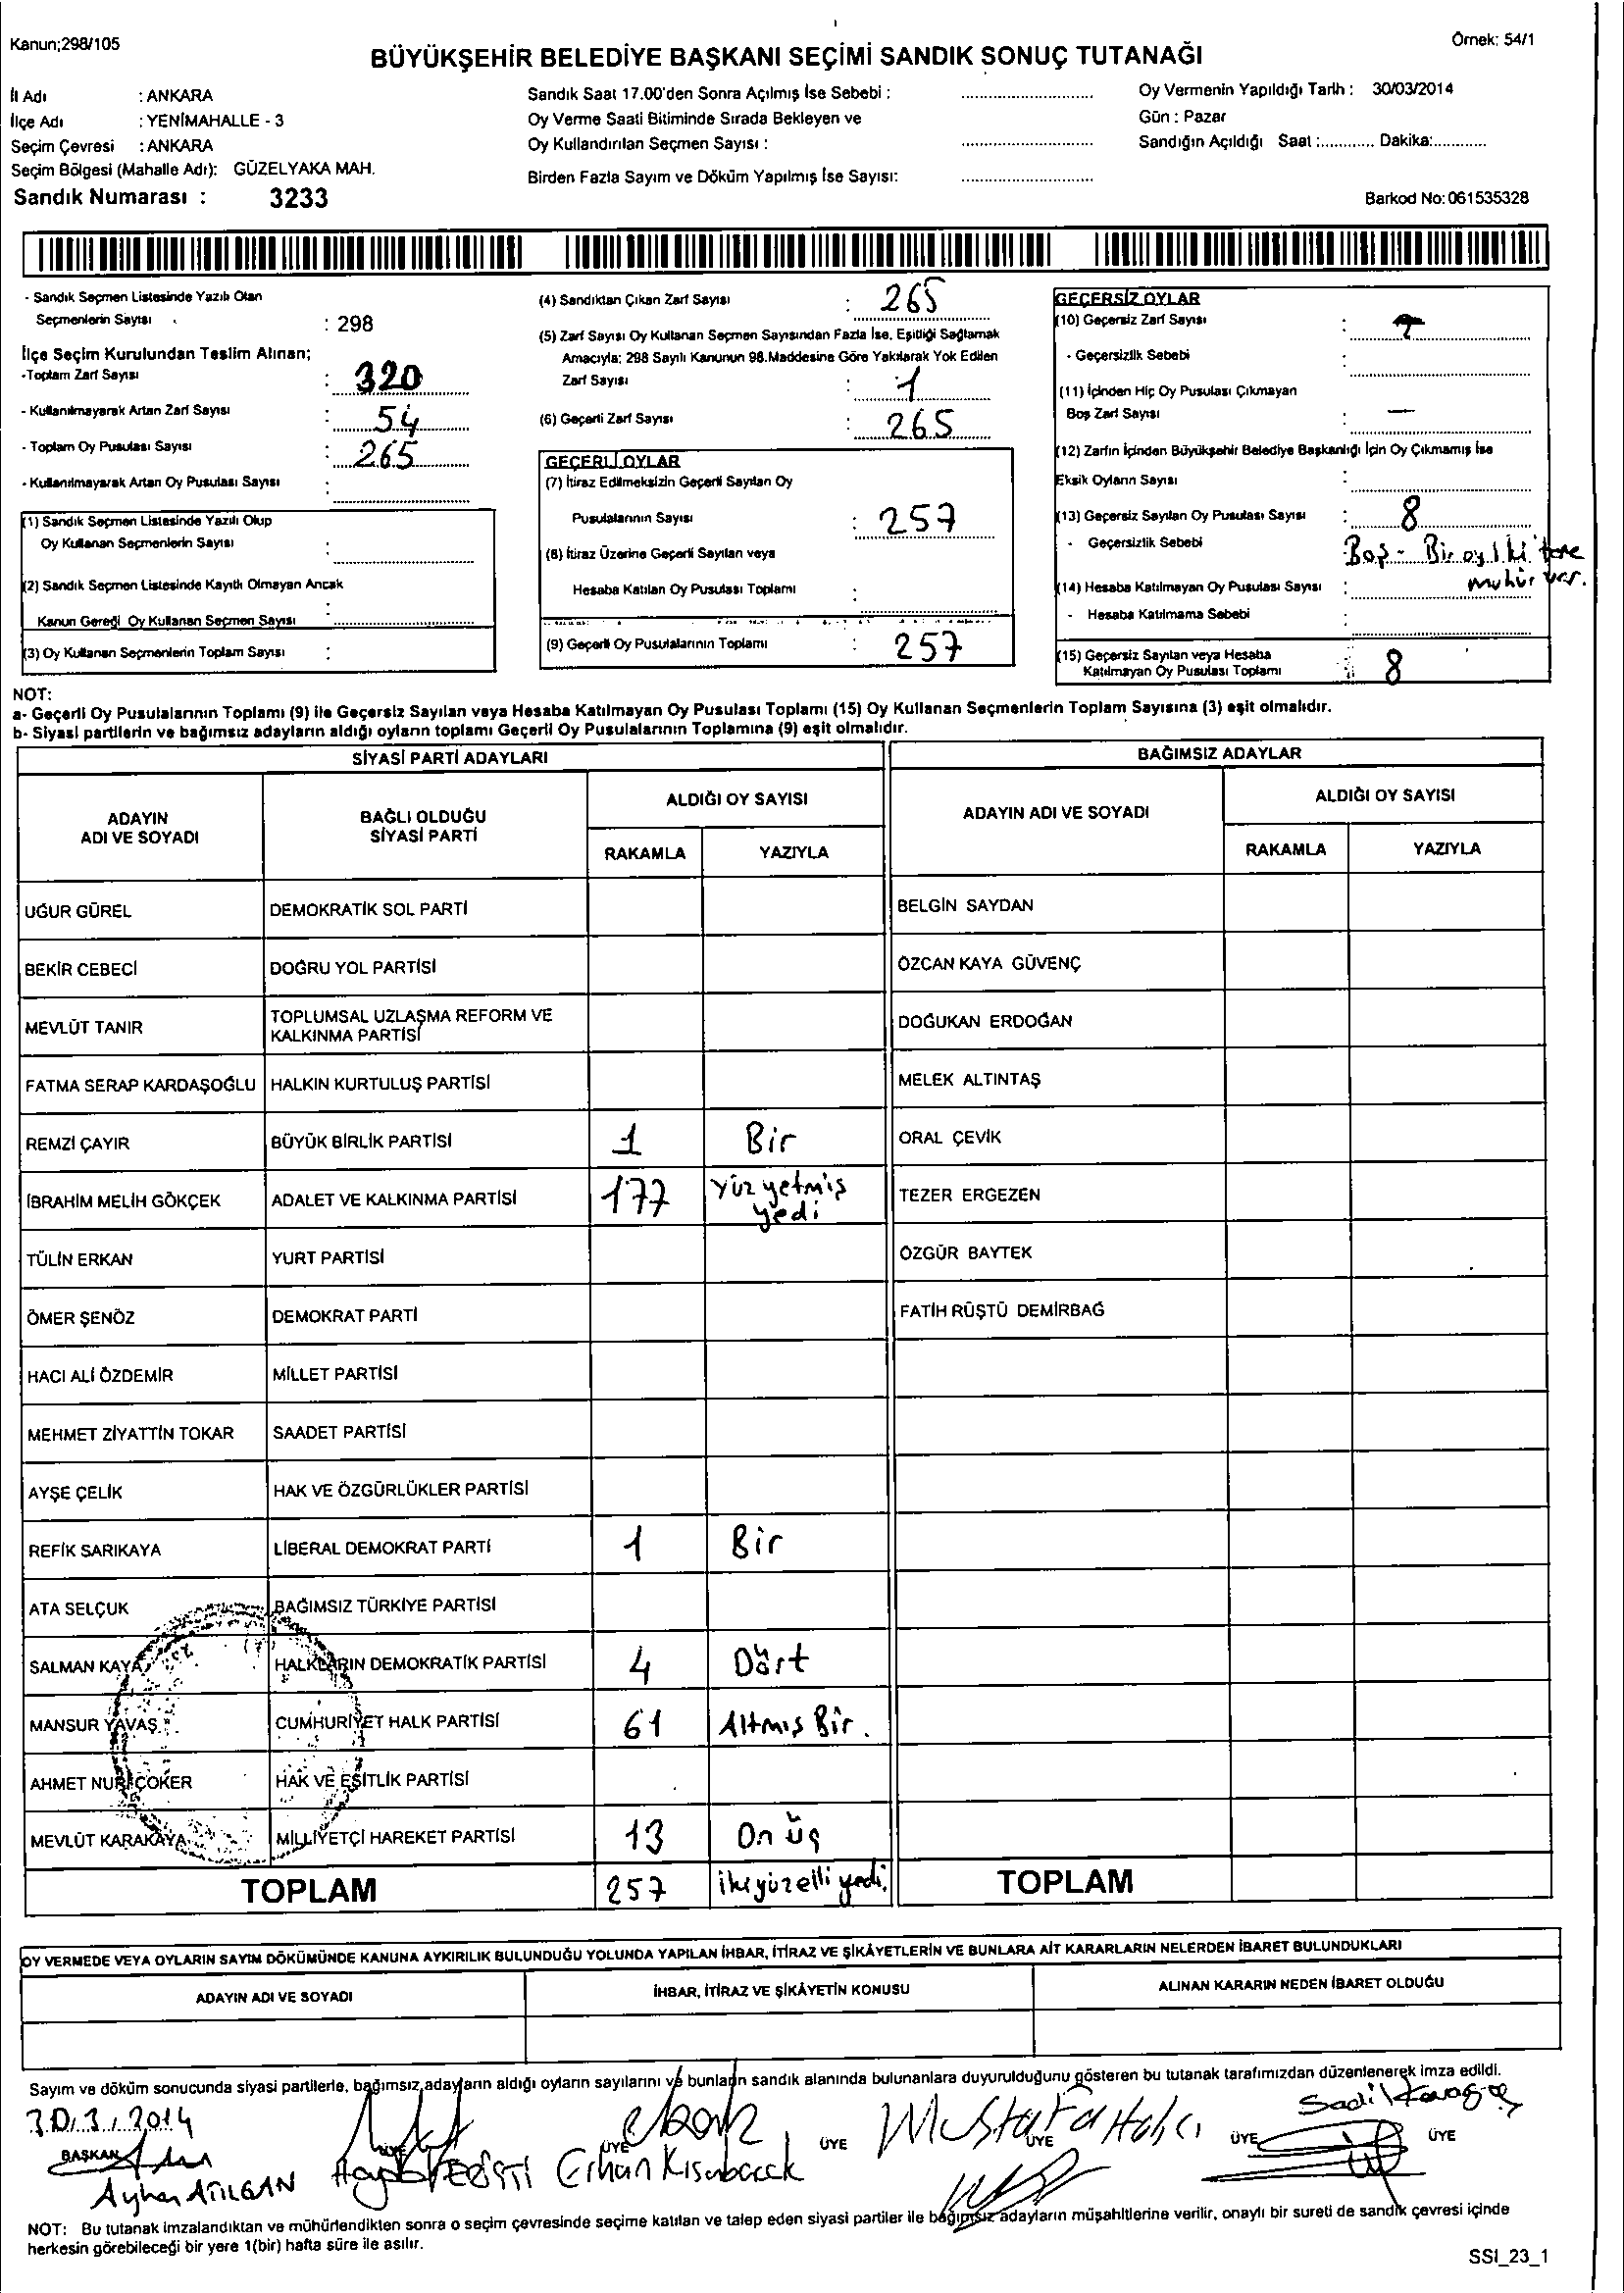 Kanun;298/105
Örnek: 54/1
BÜYÜKŞEHİR BELEDİYE BAŞKANI SEÇİMİ SANDIK SONUÇ TUTANAĞI
İl Adı : ANKARA
İlçe Adı : YENİMAHALLE - 3
Seçim Çevresi : ANKARA
Seçim Bölgesi (Mahalle Adı): GÜZELYAKA MAH.
Sandık Numarası : 3233
Sandık Saat 17.00'den Sonra Açılmış İse Sebebi :
Oy Verme Saati Bitiminde Sırada Bekleyen ve
Oy Kullandırılan Seçmen Sayısı :
Birden Fazla Sayım ve Döküm Yapılmış İse Sayısı:
Oy Vermenin Yapıldığı Tarih : 30/03/2014
Gün : Pazar
Sandığın Açıldığı Saat :............ Dakika:............
Barkod No: 061535328
- Sandık Seçmen Listesinde Yazılı Olan
Seçmenlerin Sayısı : 298
İlçe Seçim Kurulundan Teslim Alınan;
-Toplam Zarf Sayısı : 320
- Kullanılmayarak Artan Zarf Sayısı : 54
- Toplam Oy Pusulası Sayısı : 265
- Kullanılmayarak Artan Oy Pusulası Sayısı :
(1) Sandık Seçmen Listesinde Yazılı Olup
Oy Kullanan Seçmenlerin Sayısı :
(2) Sandık Seçmen Listesinde Kayıtlı Olmayan Ancak
Kanun Gereği Oy Kullanan Seçmen Sayısı :
(3) Oy Kullanan Seçmenlerin Toplam Sayısı :
(4) Sandıktan Çıkan Zarf Sayısı : 265
(5) Zarf Sayısı Oy Kullanan Seçmen Sayısından Fazla İse, Eşitliği Sağlamak
Amacıyla; 298 Sayılı Kanunun 98.Maddesine Göre Yakılarak Yok Edilen
Zarf Sayısı : 1
(6) Geçerli Zarf Sayısı : 265
GEÇERLİ OYLAR
(7) İtiraz Edilmeksizin Geçerli Sayılan Oy
Pusulalarının Sayısı : 257
(8) İtiraz Üzerine Geçerli Sayılan veya
Hesaba Katılan Oy Pusulası Toplamı :
(9) Geçerli Oy Pusulalarının Toplamı : 257
GEÇERSİZ OYLAR
(10) Geçersiz Zarf Sayısı :
- Geçersizlik Sebebi :
(11) İçinden Hiç Oy Pusulası Çıkmayan
Boş Zarf Sayısı : —
(12) Zarfın İçinden Büyükşehir Belediye Başkanlığı İçin Oy Çıkmamış İse
Eksik Oyların Sayısı :
(13) Geçersiz Sayılan Oy Pusulası Sayısı : 8
- Geçersizlik Sebebi : Boş - Bir oy iki tane
mühür var.
(14) Hesaba Katılmayan Oy Pusulası Sayısı :
- Hesaba Katılmama Sebebi :
(15) Geçersiz Sayılan veya Hesaba
Katılmayan Oy Pusulası Toplamı : 8
NOT:
a- Geçerli Oy Pusulalarının Toplamı (9) ile Geçersiz Sayılan veya Hesaba Katılmayan Oy Pusulası Toplamı (15) Oy Kullanan Seçmenlerin Toplam Sayısına (3) eşit olmalıdır.
b- Siyasi partilerin ve bağımsız adayların aldığı oyların toplamı Geçerli Oy Pusulalarının Toplamına (9) eşit olmalıdır.
SİYASİ PARTİ ADAYLARI
ADAYIN ADI VE SOYADI BAĞLI OLDUĞU SİYASİ PARTİ ALDIĞI OY SAYISI
RAKAMLA YAZIYLA
UĞUR GÜREL DEMOKRATİK SOL PARTİ
BEKİR CEBECİ DOĞRU YOL PARTİSİ
MEVLÜT TANIR TOPLUMSAL UZLAŞMA REFORM VE KALKINMA PARTİSİ
FATMA SERAP KARDAŞOĞLU HALKIN KURTULUŞ PARTİSİ
REMZİ ÇAYIR BÜYÜK BİRLİK PARTİSİ 1 Bir
İBRAHİM MELİH GÖKÇEK ADALET VE KALKINMA PARTİSİ 177 Yüz yetmiş yedi
TÜLİN ERKAN YURT PARTİSİ
ÖMER ŞENÖZ DEMOKRAT PARTİ
HACI ALİ ÖZDEMİR MİLLET PARTİSİ
MEHMET ZİYATTİN TOKAR SAADET PARTİSİ
AYŞE ÇELİK HAK VE ÖZGÜRLÜKLER PARTİSİ
REFİK SARIKAYA LİBERAL DEMOKRAT PARTİ 1 Bir
ATA SELÇUK BAĞIMSIZ TÜRKİYE PARTİSİ
SALMAN KAYA HALKLARIN DEMOKRATİK PARTİSİ 4 Dört
MANSUR YAVAŞ CUMHURİYET HALK PARTİSİ 61 Altmış Bir.
AHMET NURİ ÇOKER HAK VE EŞİTLİK PARTİSİ
MEVLÜT KARAKAYA MİLLİYETÇİ HAREKET PARTİSİ 13 On üç
TOPLAM 257 ikiyüzelli yedi.
BAĞIMSIZ ADAYLAR
ADAYIN ADI VE SOYADI ALDIĞI OY SAYISI
RAKAMLA YAZIYLA
BELGİN SAYDAN
ÖZCAN KAYA GÜVENÇ
DOĞUKAN ERDOĞAN
MELEK ALTINTAŞ
ORAL ÇEVİK
TEZER ERGEZEN
ÖZGÜR BAYTEK
FATİH RÜŞTÜ DEMİRBAĞ
TOPLAM
OY VERMEDE VEYA OYLARIN SAYIM DÖKÜMÜNDE KANUNA AYKIRILIK BULUNDUĞU YOLUNDA YAPILAN İHBAR, İTİRAZ VE ŞİKÂYETLERİN VE BUNLARA AİT KARARLARIN NELERDEN İBARET BULUNDUKLARI
ADAYIN ADI VE SOYADI İHBAR, İTİRAZ VE ŞİKÂYETİN KONUSU ALINAN KARARIN NEDEN İBARET OLDUĞU
Sayım ve döküm sonucunda siyasi partilerle, bağımsız adayların aldığı oyların sayılarını ve bunların sandık alanında bulunanlara duyurulduğunu gösteren bu tutanak tarafımızdan düzenlenerek imza edildi.
30.3.2014
BAŞKAN ÜYE ÜYE ÜYE ÜYE ÜYE ÜYE
Ayhan ATILGAN Erhan Kısabacak Mustafa
NOT: Bu tutanak imzalandıktan ve mühürlendikten sonra o seçim çevresinde seçime katılan ve talep eden siyasi partiler ile bağımsız adayların müşahitlerine verilir, onaylı bir sureti de sandık çevresi içinde
herkesin görebileceği bir yere 1(bir) hafta süre ile asılır.
SSI_23_1